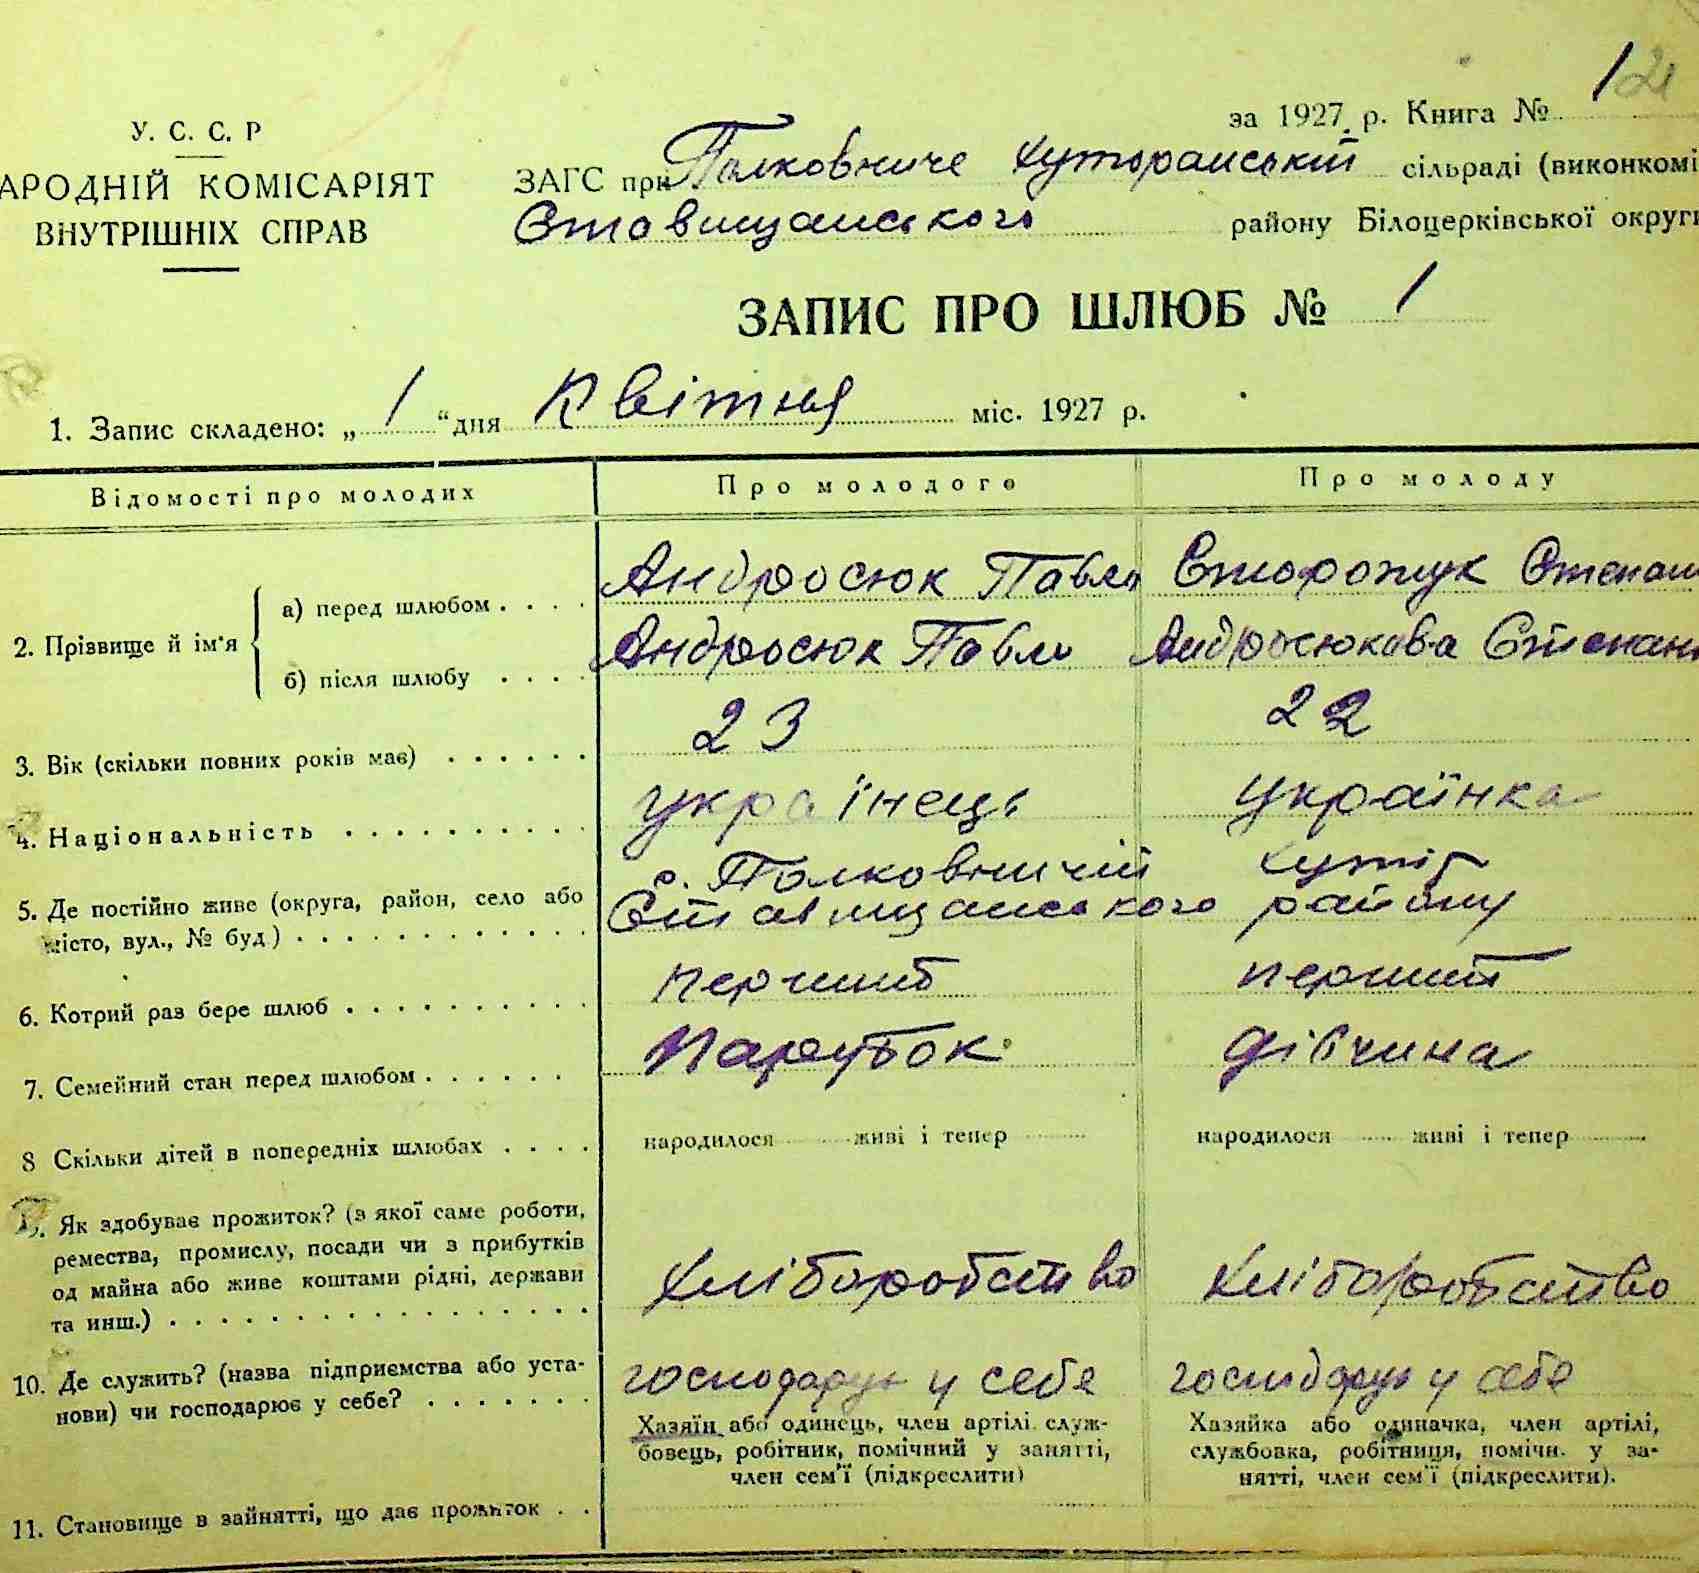 за 1927 р. Книга № 1 21
У. С. С. Р
АРОДНІЙ КОМІСАРІЯТ
ВНУТРІШНІХ СПРАВ
ЗАГС при Полковниче Хуторанській сільраді (виконкомі
Ставищанського району Білоцерківської округи
ЗАПИС ПРО ШЛЮБ № 1
1. Запис складено: „ 1 “ дня Квітня міс. 1927 р.
Відомості про молодих
Про молодого
Про молоду
2. Прізвище й ім'я
а) перед шлюбом . . . .
Андросюк Павло
Сторожук Степан
б) після шлюбу . . . .
Андросюк Павло
Андросюкова Степан
3. Вік (скільки повних років має) . . . . . .
23
22
4. Національність . . . . . . . . . .
українець
українка
5. Де постійно живе (округа, район, село або
місто, вул., № буд) . . . . . . . . . . . .
с. Полковничій хутір
Ставищанського району
6. Котрий раз бере шлюб . . . . . . . . . .
перший
перший
7. Семейний стан перед шлюбом . . . . . .
Парубок
дівчина
8 Скільки дітей в попередніх шлюбах . . . .
народилося живі і тепер
народилося живі і тепер
9. Як здобуває прожиток? (з якої саме роботи,
ремества, промислу, посади чи з прибутків
од майна або живе коштами рідні, держави
та инш.) . . . . . . . . . . . . . . . . .
Хліборобство
Хліборобство
10. Де служить? (назва підприємства або уста-
нови) чи господарює у себе? . . . . . . .
господарує у себе
господарує у себе
Хазяїн або одинець, член артілі служ-
бовець, робітник, помічний у занятті,
член сем'ї (підкреслити)
Хазяйка або одиначка, член артілі,
службовка, робітниця, помічн. у за-
нятті, член сем'ї (підкреслити).
11. Становище в зайнятті, що дає прожиток . .